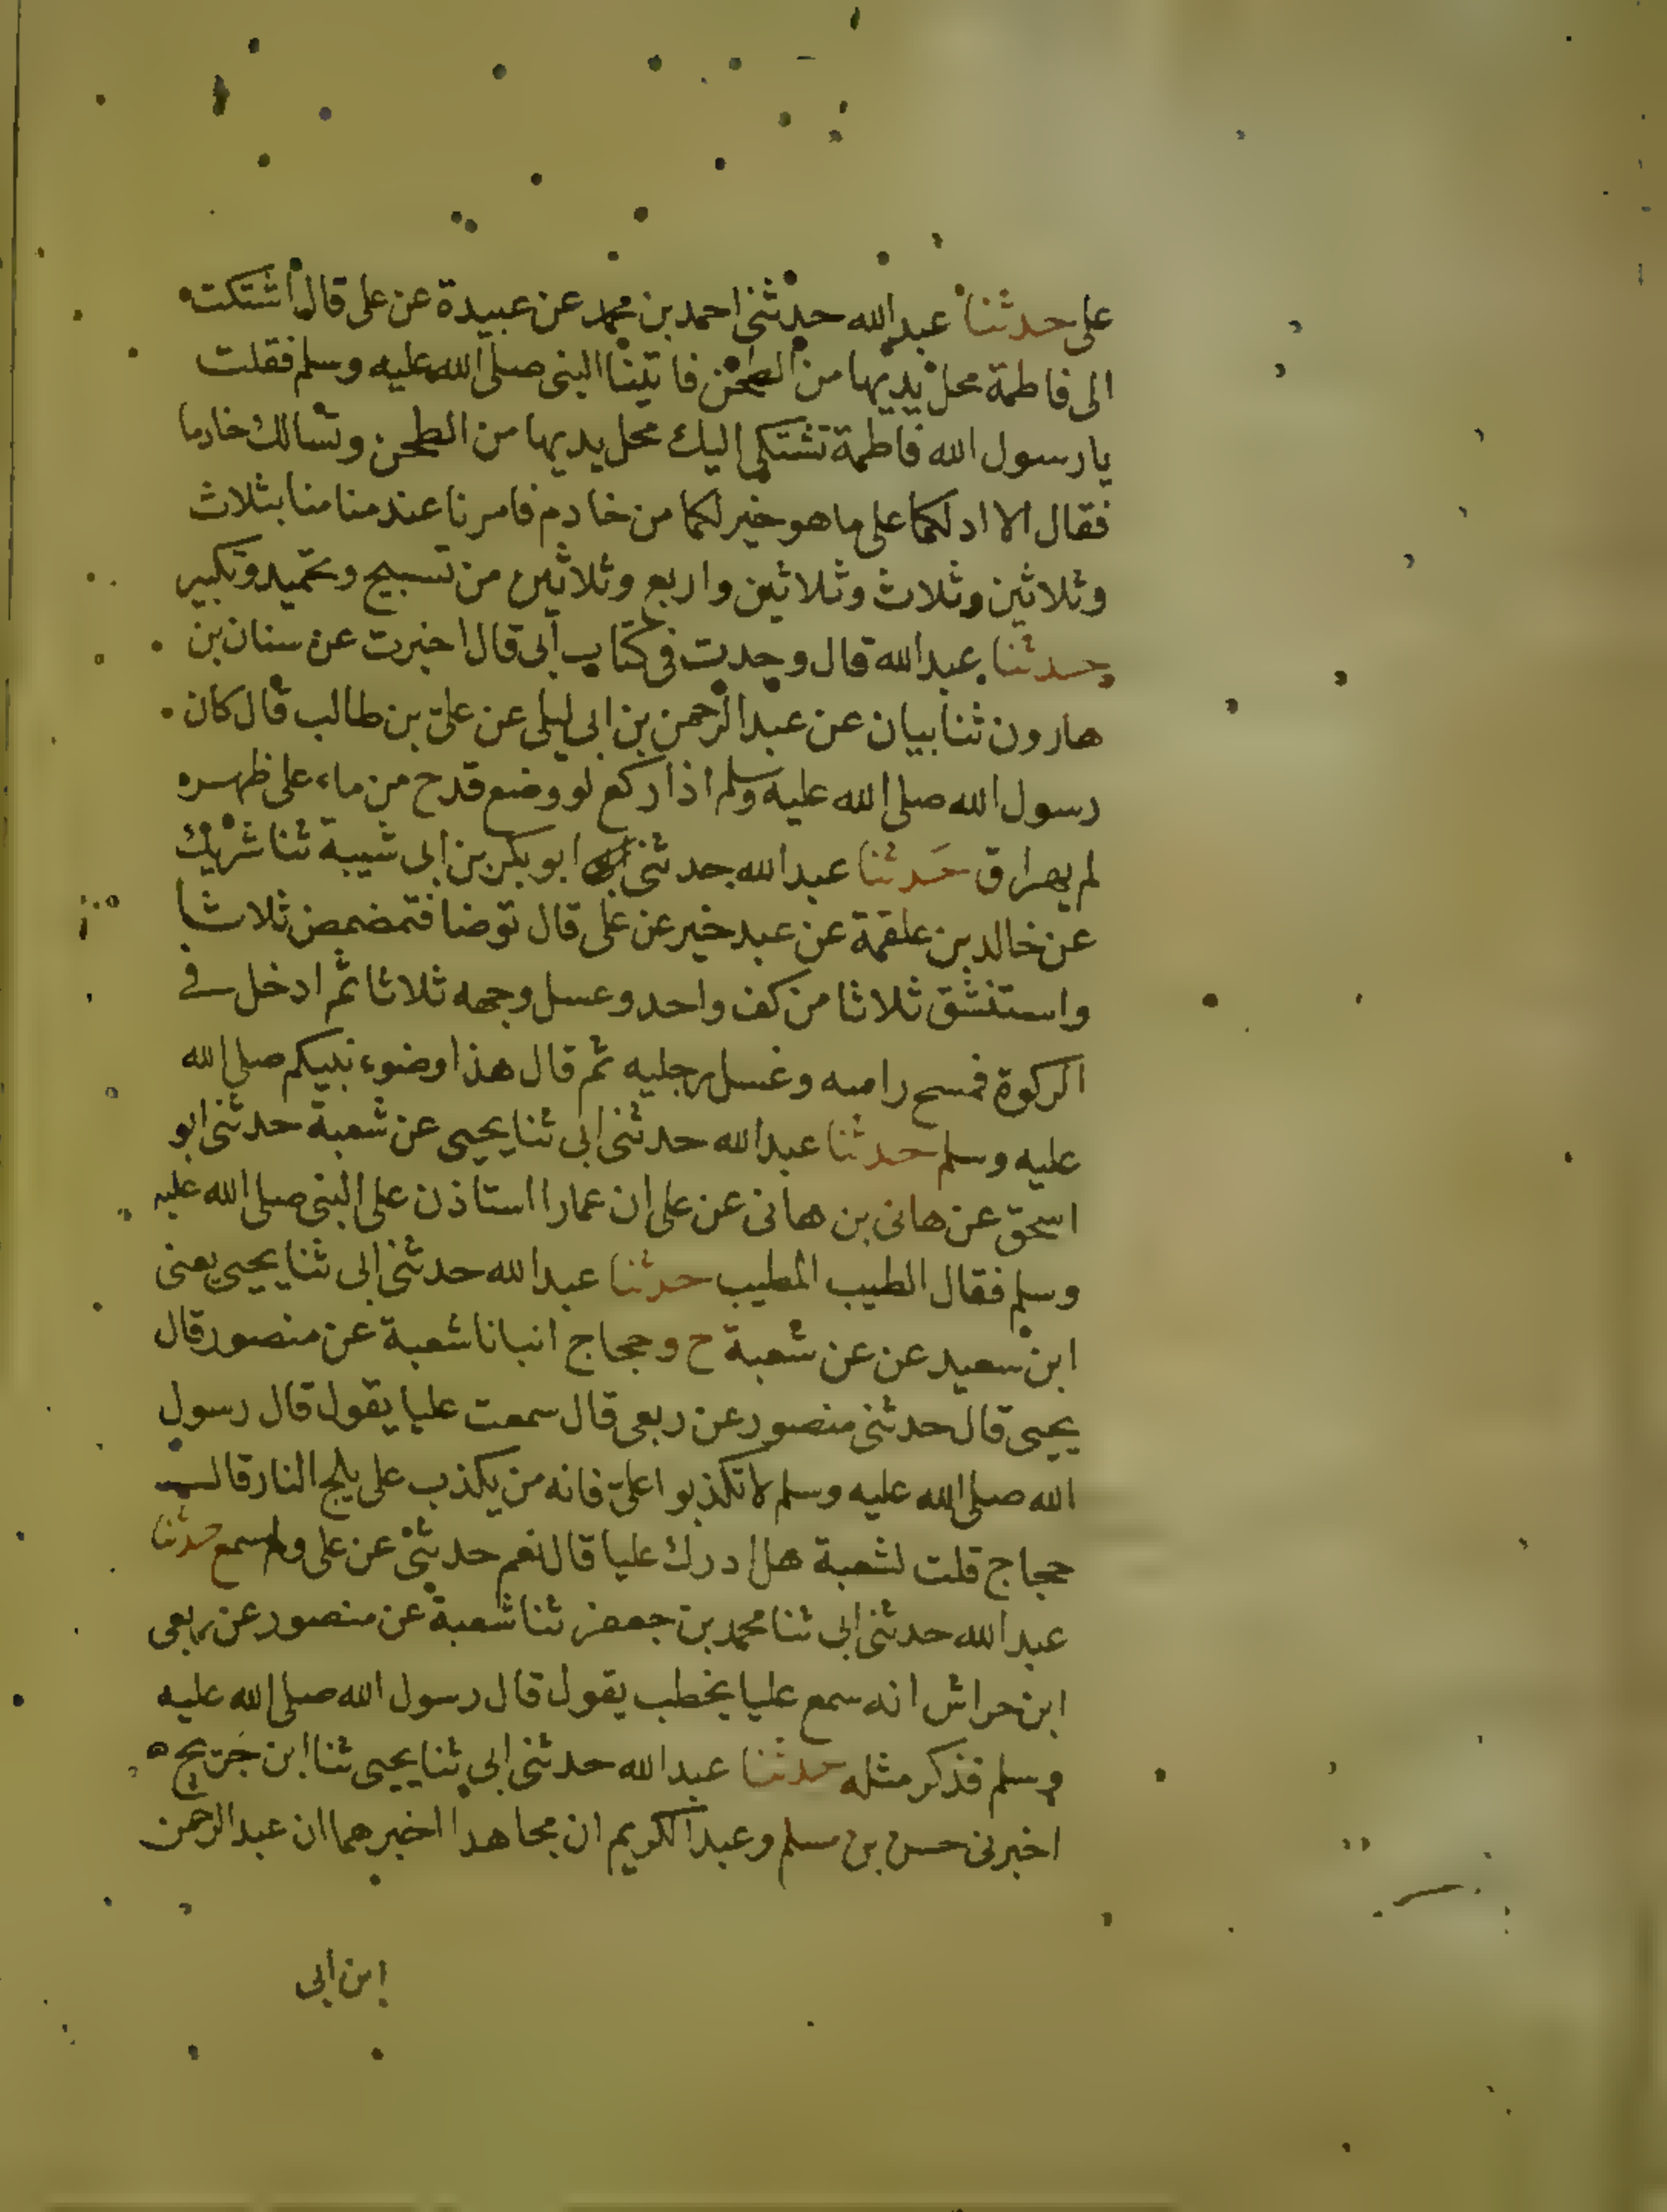 على حدثنا عبد الله حدثنى احمد بن محمد عن عبيدة عن على قال اشتكت
الى فاطمة محل يديها من الطحن فاتينا النبى صلى الله عليه وسلم فقلت
يا رسول الله فاطمة تشتكى اليك محل يديها من الطحن وتسالك خادما
فقال الا ادلكما على ما هو خير لكما من خادم فامرنا عند منامنا بثلاث
وثلاثين وثلاث وثلاثين واربع وثلاثين من تسبيح وتحميد وتكبير
حدثنا عبد الله قال وجدت فى كتاب ابى قال اخبرت عن سنان بن
هارون ثنا بيان عن عبد الرحمن بن ابى ليلى عن على بن طالب قال كان
رسول الله صلى الله عليه وسلم اذا ركع لو وضع قدح من ماء على ظهره
لم يهراق حدثنا عبد الله حدثنى ابو بكر بن ابى شيبة ثنا شريك
عن خالد بن علقمة عن عبد خير عن على قال توضا فتمضمض ثلاثا
واستنشق ثلاثا من كف واحد وغسل وجهه ثلاثا ثم ادخل فى
الركوة فمسح راسه وغسل رجليه ثم قال هذا وضوء نبيكم صلى الله
عليه وسلم حدثنا عبد الله حدثنى ابى ثنا يحيى عن شعبة حدثنى ابو
اسحق عن هانى بن هانى عن على ان عمارا استاذن على النبى صلى الله عليه
وسلم فقال الطيب المطيب حدثنا عبد الله حدثنى ابى ثنا يحيى يعنى
ابن سعيد عن عن شعبة ح وحجاج انبانا شعبة عن منصور قال
يحيى قال حدثنى منصور عن ربعى قال سمعت عليا يقول قال رسول
الله صلى الله عليه وسلم لا تكذبوا على فانه من يكذب على يلج النار قال
حجاج قلت لشعبة هل ادرك عليا قال نعم حدثنى عن على ولم اسمع حدثنا
عبد الله حدثنى ابى ثنا محمد بن جعفر ثنا شعبة عن منصور عن ربعى
ابن حراش انه سمع عليا يخطب يقول قال رسول الله صلى الله عليه
وسلم فذكر مثله حدثنا عبد الله حدثنى ابى ثنا يحيى ثنا ابن جريج
اخبرنى حسن بن مسلم وعبد الكريم ان مجاهدا اخبرهما ان عبد الرحمن
ابن ابى